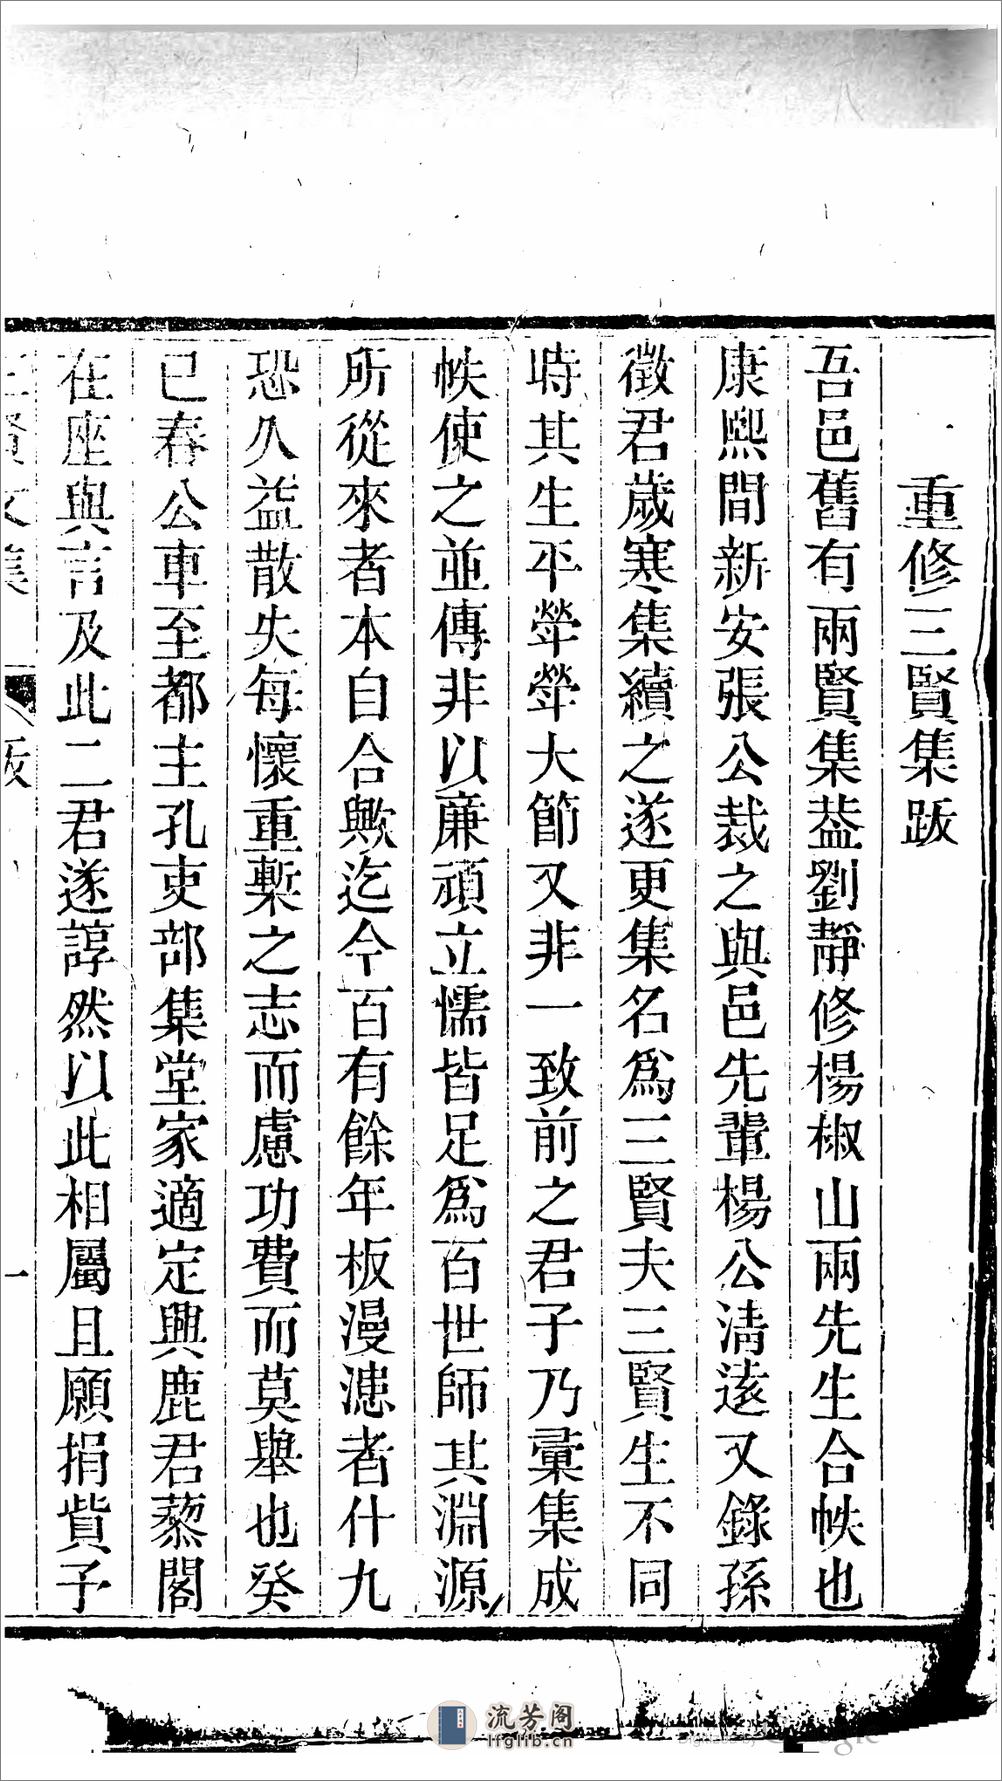 重修三賢集跋
吾邑舊有兩賢集葢劉靜修楊椒山兩先生合帙也
康熙間新安張公裁之與邑先輩楊公淸逺又錄孫
徵君歲寒集續之遂更集名爲三賢夫三賢生不同
時其生平犖犖大節又非一致前之君子乃彙集成
帙使之並傳非以廉頑立懦皆足爲百世師其淵源
所從來者本自合歟迄今百有餘年板漫漶者什九
恐久益散失每懷重槧之志而慮功費而莫舉也癸
巳春公車至都主孔吏部集堂家適定興鹿君藜閣
在座與言及此二君遂諄然以此相屬且願捐貲予
三賢文集 跋 一
流芳阁
lfglib.cn
Digitized by Google